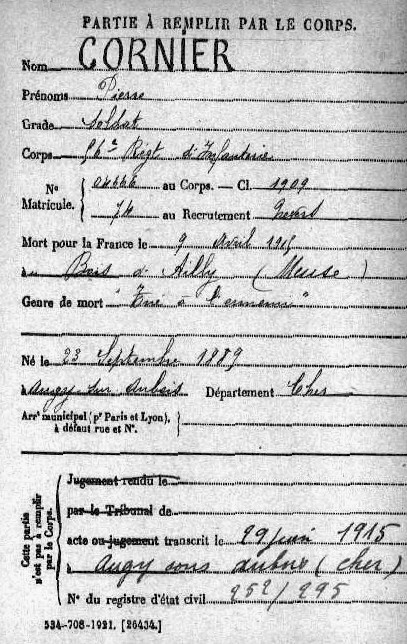 PARTIE À REMPLIR PAR LE CORPS.
Nom CORNIER
Prénoms Pierre
Grade Soldat
Corps 56e Régt d'Infanterie
N° Matricule. 04666 au Corps. — Cl. 1909
74 au Recrutement Nevers
Mort pour la France le 9 Avril 1915
à au Bois d'Ailly (Meuse)
Genre de mort "Tué à l'ennemi"
Né le 23 Septembre 1889
à Augy sur Aubois Département Cher
Arrt municipal (pr Paris et Lyon),
à défaut rue et N°.
Cette partie n'est pas à remplir par le Corps.
Jugement rendu le
par le Tribunal de
acte ou jugement transcrit le 29 juin 1915
à Augy sous Aubois (Cher)
N° du registre d'état civil 252/295
534-708-1921. [26434.]